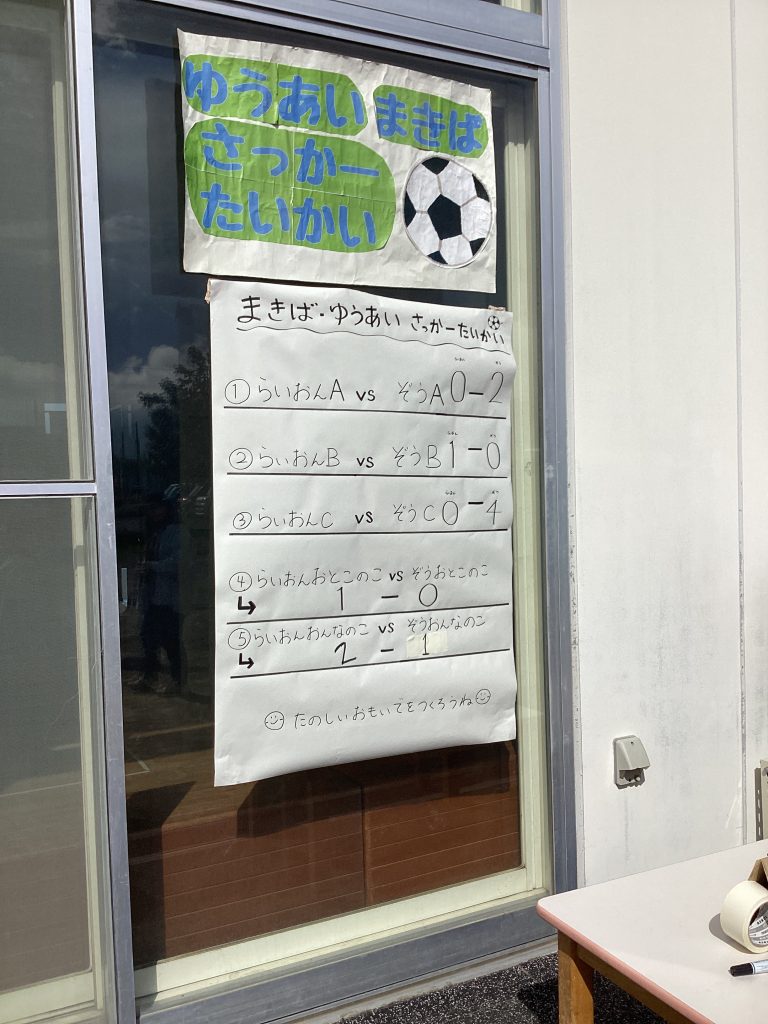 ゆうあい まきば
さっかー
たいかい
まきば・ゆうあい さっかーたいかい
① らいおんA vs ぞうA 0-2
② らいおんB vs ぞうB 1-0
③ らいおんC vs ぞうC 0-4
④ らいおんおとこのこ vs ぞうおとこのこ
↳ 1 - 0
⑤ らいおんおんなのこ vs ぞうおんなのこ
↳ 2 - 1
たのしいおもいでをつくろうね